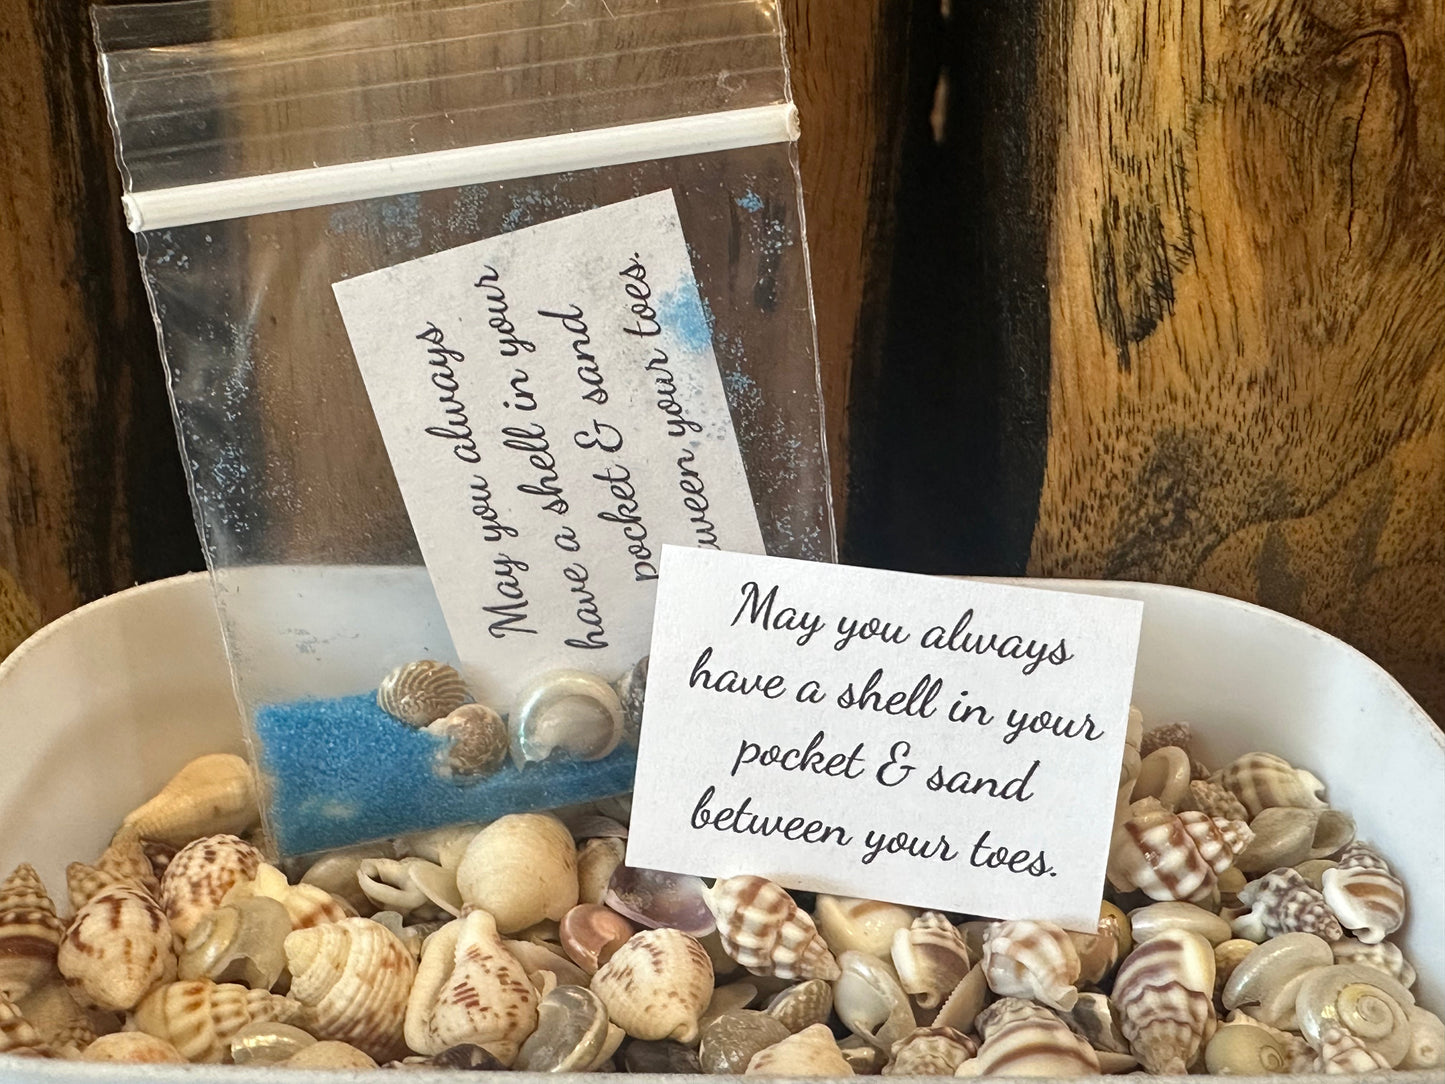 May you always
have a shell in your
pocket & sand
ween your toes.
May you always
have a shell in your
pocket & sand
between your toes.